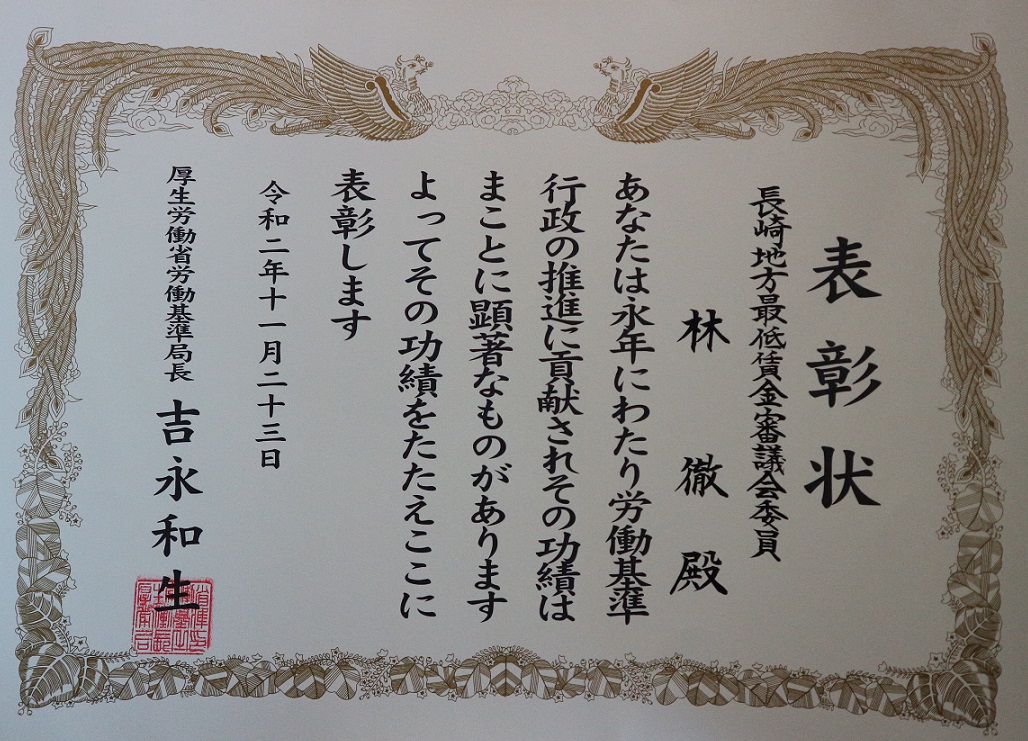 表彰状
長崎地方最低賃金審議会委員
林 徹 殿
あなたは永年にわたり労働基準
行政の推進に貢献されその功績は
まことに顕著なものがあります
よってその功績をたたえここに
表彰します
令和二年十一月二十三日
厚生労働省労働基準局長 吉永和生